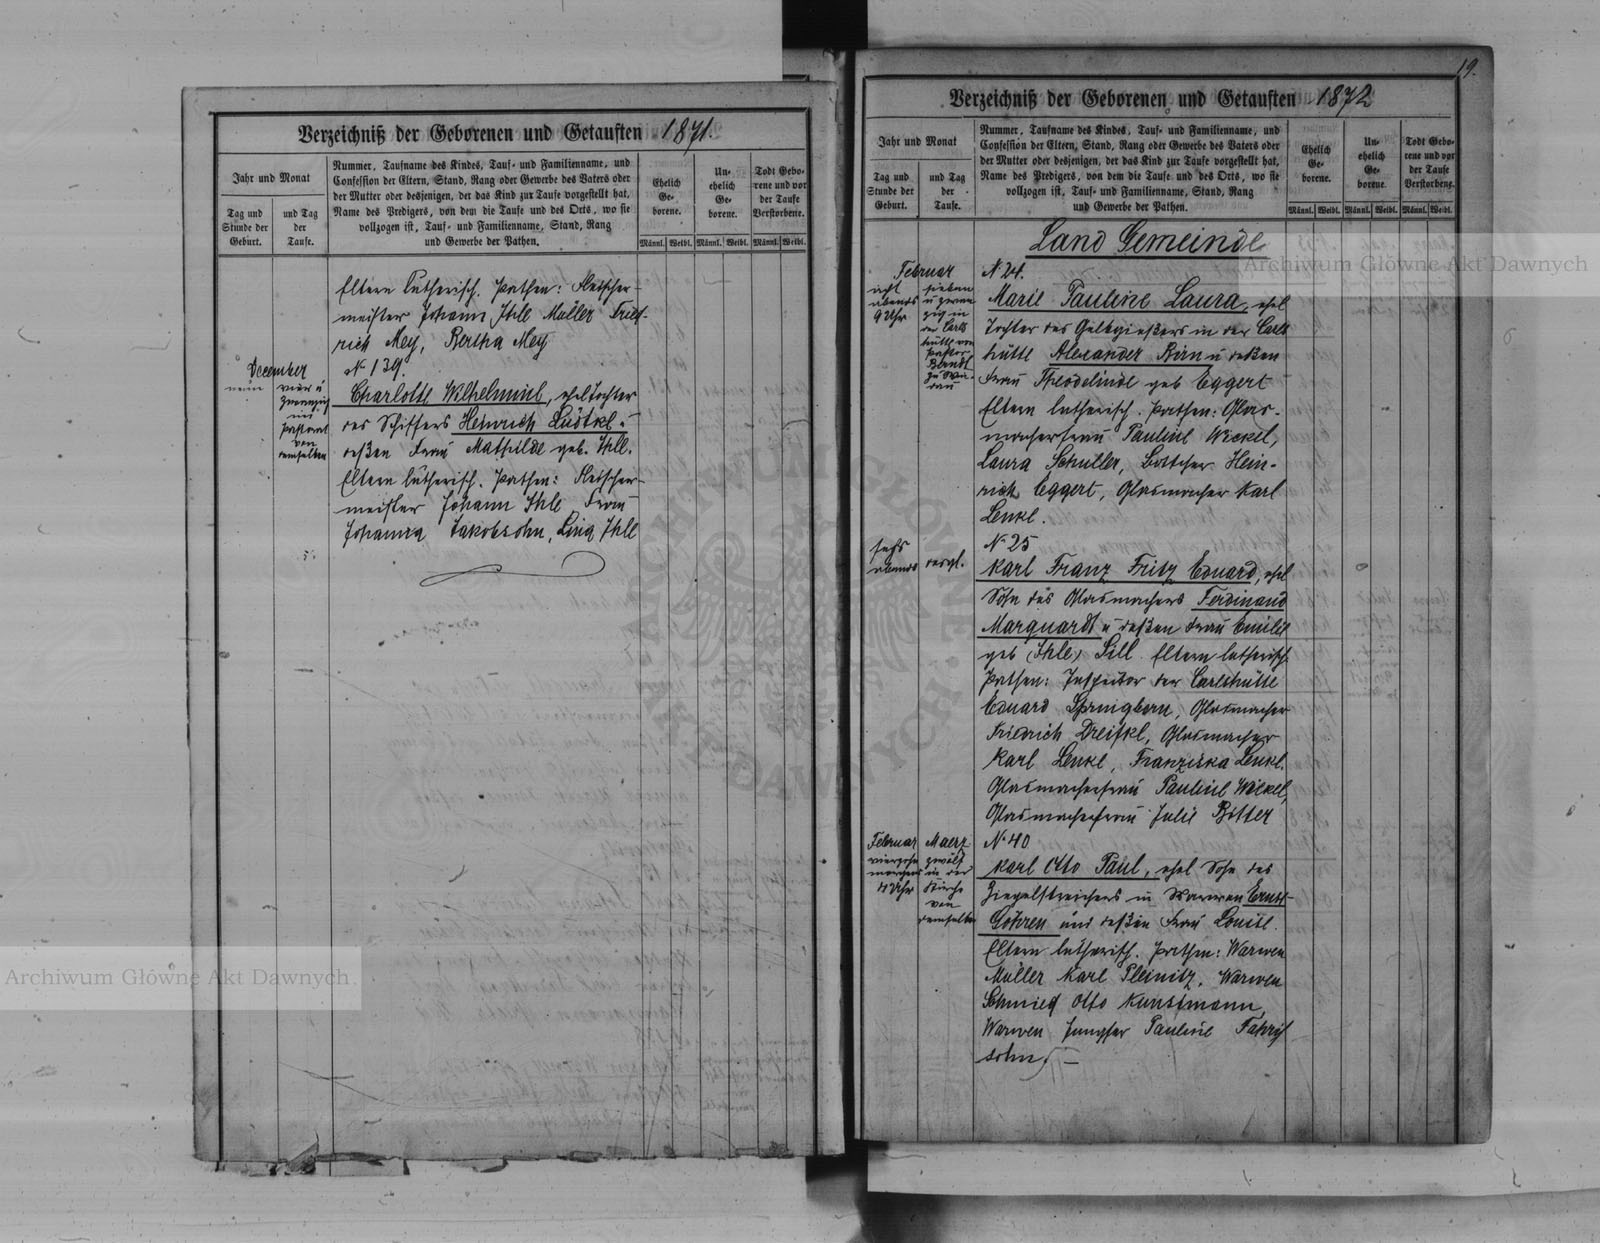 Verzeichniß der Geborenen und Getauften 1871.
Jahr und Monat
Tag und
Stunde der
Geburt.
und Tag
der
Taufe.
Nummer, Taufname des Kindes, Tauf- und Familienname, und
Confession der Eltern, Stand, Rang oder Gewerbe des Vaters oder
der Mutter oder desjenigen, der das Kind zur Taufe vorgestellt hat,
Name des Predigers, von dem die Taufe und des Orts, wo sie
vollzogen ist, Tauf- und Familienname, Stand, Rang
und Gewerbe der Pathen.
Ehelich
Ge-
borene.
Un-
ehelich
Ge-
borene.
Todt Gebo-
rene und vor
der Taufe
Verstorbene.
Männl. Weibl. Männl. Weibl. Männl. Weibl.
Eltern lutherisch. Pathen: Fleischer-
meister Johann Ihle Müller Fried-
rich Mey, Bertha Mey
December
neun
vier u
zwanzig
im
Pastorat
von
demselben
N 139.
Charlotte Wilhelmine, ehel Tochter
des Schiffers Heinrich Lüdtke u
deßen Frau Mathilde geb. Ihle.
Eltern lutherisch. Pathen: Fleischer-
meister Johann Ihle, Frau
Johanna Jakobsohn, Lina Ihle
19.
Verzeichniß der Geborenen und Getauften 1872
Jahr und Monat
Tag und
Stunde der
Geburt.
und Tag
der
Taufe.
Nummer, Taufname des Kindes, Tauf- und Familienname, und
Confession der Eltern, Stand, Rang oder Gewerbe des Vaters oder
der Mutter oder desjenigen, der das Kind zur Taufe vorgestellt hat,
Name des Predigers, von dem die Taufe und des Orts, wo sie
vollzogen ist, Tauf- und Familienname, Stand, Rang
und Gewerbe der Pathen.
Ehelich
Ge-
borene.
Un-
ehelich
Ge-
borene.
Todt Gebo-
rene und vor
der Taufe
Verstorbene.
Männl. Weibl. Männl. Weibl. Männl. Weibl.
Land Gemeinde
Februar
acht
abends
9 Uhr
sieben
u zwan
zig in
der Carls
hütte von
Pastor
Berndt
N 24.
Marie Pauline Laura, ehel
Tochter des Gelbgießers in der Carls
hütte Alexander Birn u deßen
Frau Theodelinde geb Eggert
Eltern lutherisch. Pathen: Glas-
macherfrau Pauline Weckel,
Laura Schuller, Böttcher Hein-
rich Eggert, Glasmacher Karl
Lenkl.
sechs
abends
desgl.
N 25
Karl Franz Fritz Eduard, ehel
Sohn des Glasmachers Ferdinand
Marquardt u deßen Frau Emilie
geb (Ihle) Sill. Eltern lutherisch
Pathen: Inspector der Carlshütte
Eduard Springborn, Glasmacher
Friedrich Dreifkl, Glasmacher
Karl Lenkl, Franziska Lenkl.
Glasmacherfrau Pauline Weckel,
Glasmacherfrau Julie Bitter
Februar
vierzehn
morgens
4 Uhr
Maerz
zwölf
in der
Kirche
von
demselben
N 40
Karl Otto Paul, ehel Sohn des
Ziegelstreichers in Warwen Ernst
Göhren und deßen Frau Louise.
Eltern lutherisch. Pathen: Warwen
Müller Karl Pleinitz, Warwen
Schmied Otto Kunstmann,
Warwen Jungfer Pauline
sohn.
Archiwum Główne Akt Dawnych
Archiwum Główne Akt Dawnych